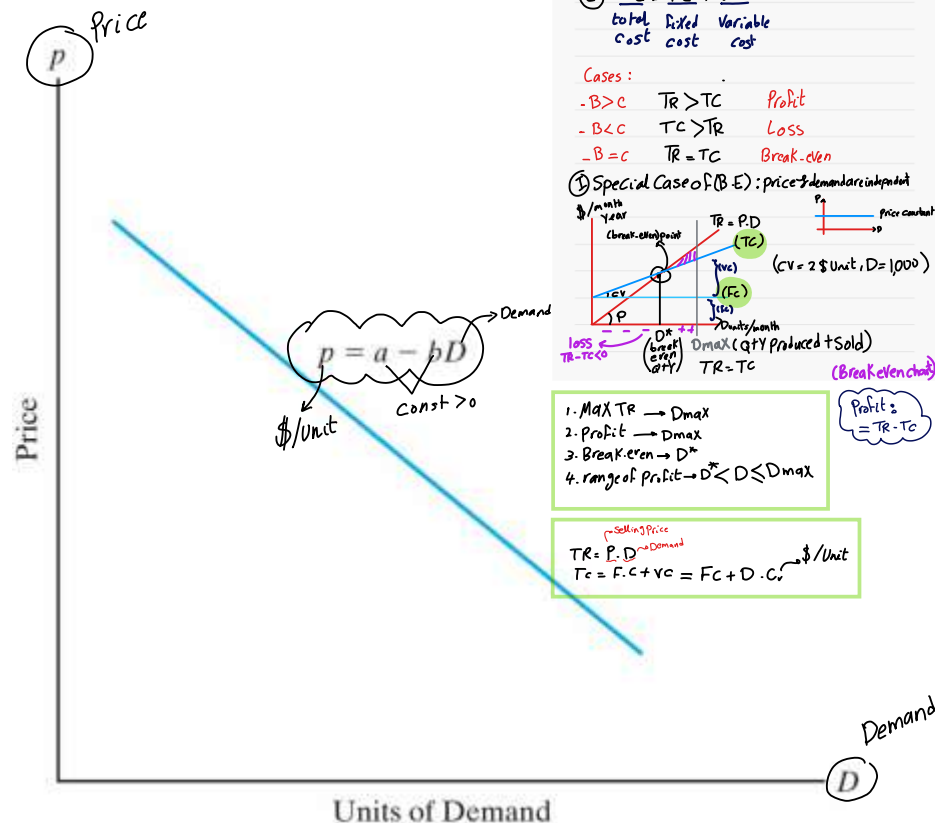 Price
p
Price
p = a - bD
Demand
$/Unit
const >0
Units of Demand
D
Demand
total fixed Variable
cost cost cost
Cases :
- B>C TR >TC Profit
- B<C TC >TR Loss
- B=C TR = TC Break-even
I Special Case of (B.E) : price & demand are indepndent
$/month
year
(break-even) point
TR = P.D
(TC)
(VC)
(FC)
(FC)
CV
P
P
Price constant
D
(CV = 2 $ Unit, D= 1,000)
D units/month
- - - ++
loss
TR-TC<0
D*
(break
even
Q+Y)
Dmax (Q+Y Produced + Sold)
TR = TC
(Break even chart)
Profit :
= TR - TC
1. Max TR → Dmax
2. Profit → Dmax
3. Break.even → D*
4. range of Profit → D* < D ≤ Dmax
Selling Price
TR = P. D Demand
TC = F.C + VC = FC + D . Cv $/Unit